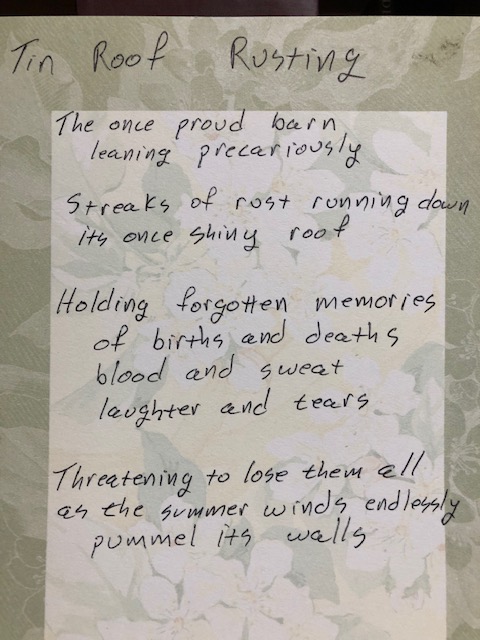 Tin Roof Rusting
The once proud barn
leaning precariously
Streaks of rust running down
its once shiny roof
Holding forgotten memories
of births and deaths
blood and sweat
laughter and tears
Threatening to lose them all
as the summer winds endlessly
pummel its walls